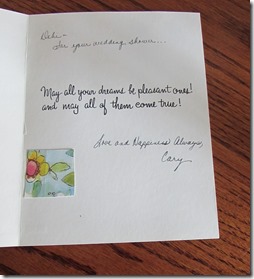 Debi-
For your wedding shower...
May all your dreams be pleasant ones!
and may all of them come true!
Love and Happiness Always,
Cary